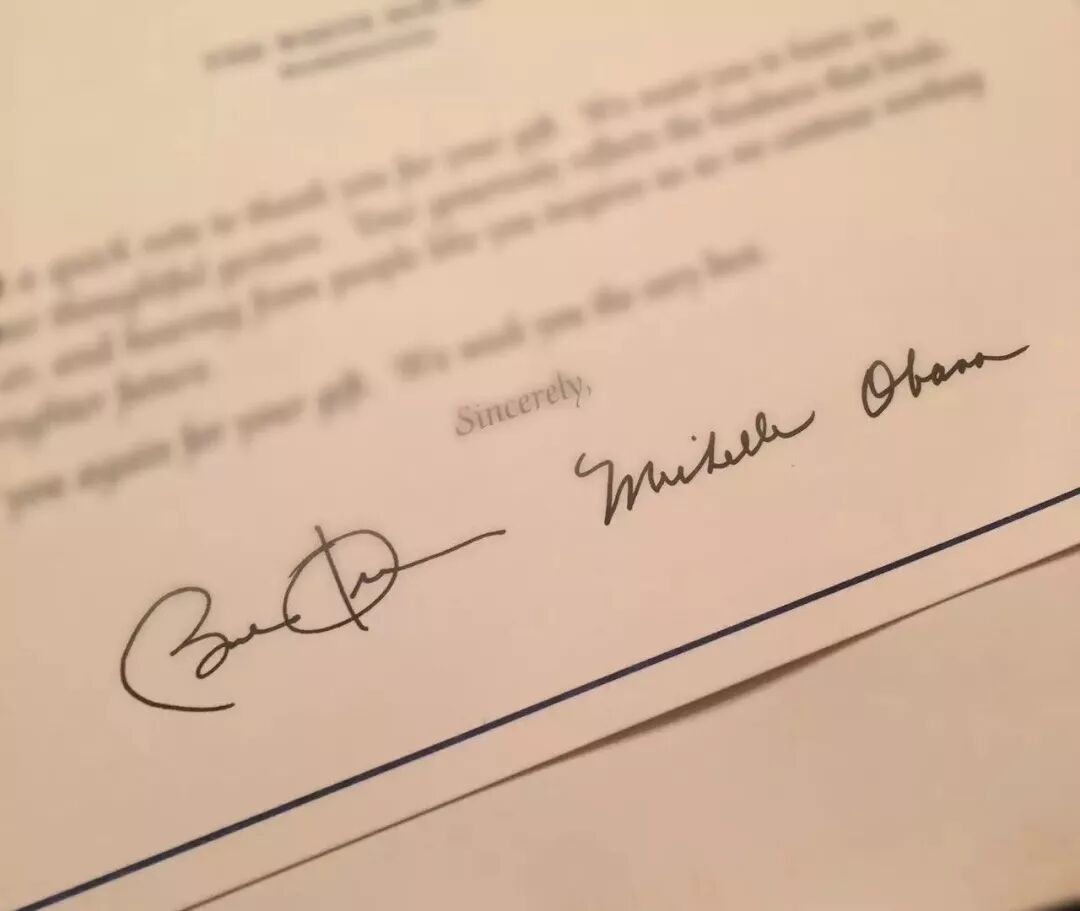 THE WHITE HOUSE
WASHINGTON
a quick note to thank you for your gift. We want you to know
thoughtful gesture. Your generosity reflects the kindness that binds
and hearing from people like you inspires us as we continue working
brighter future.
you again for your gift. We wish you the very best.
Sincerely,
Michelle Obama
Barack Obama